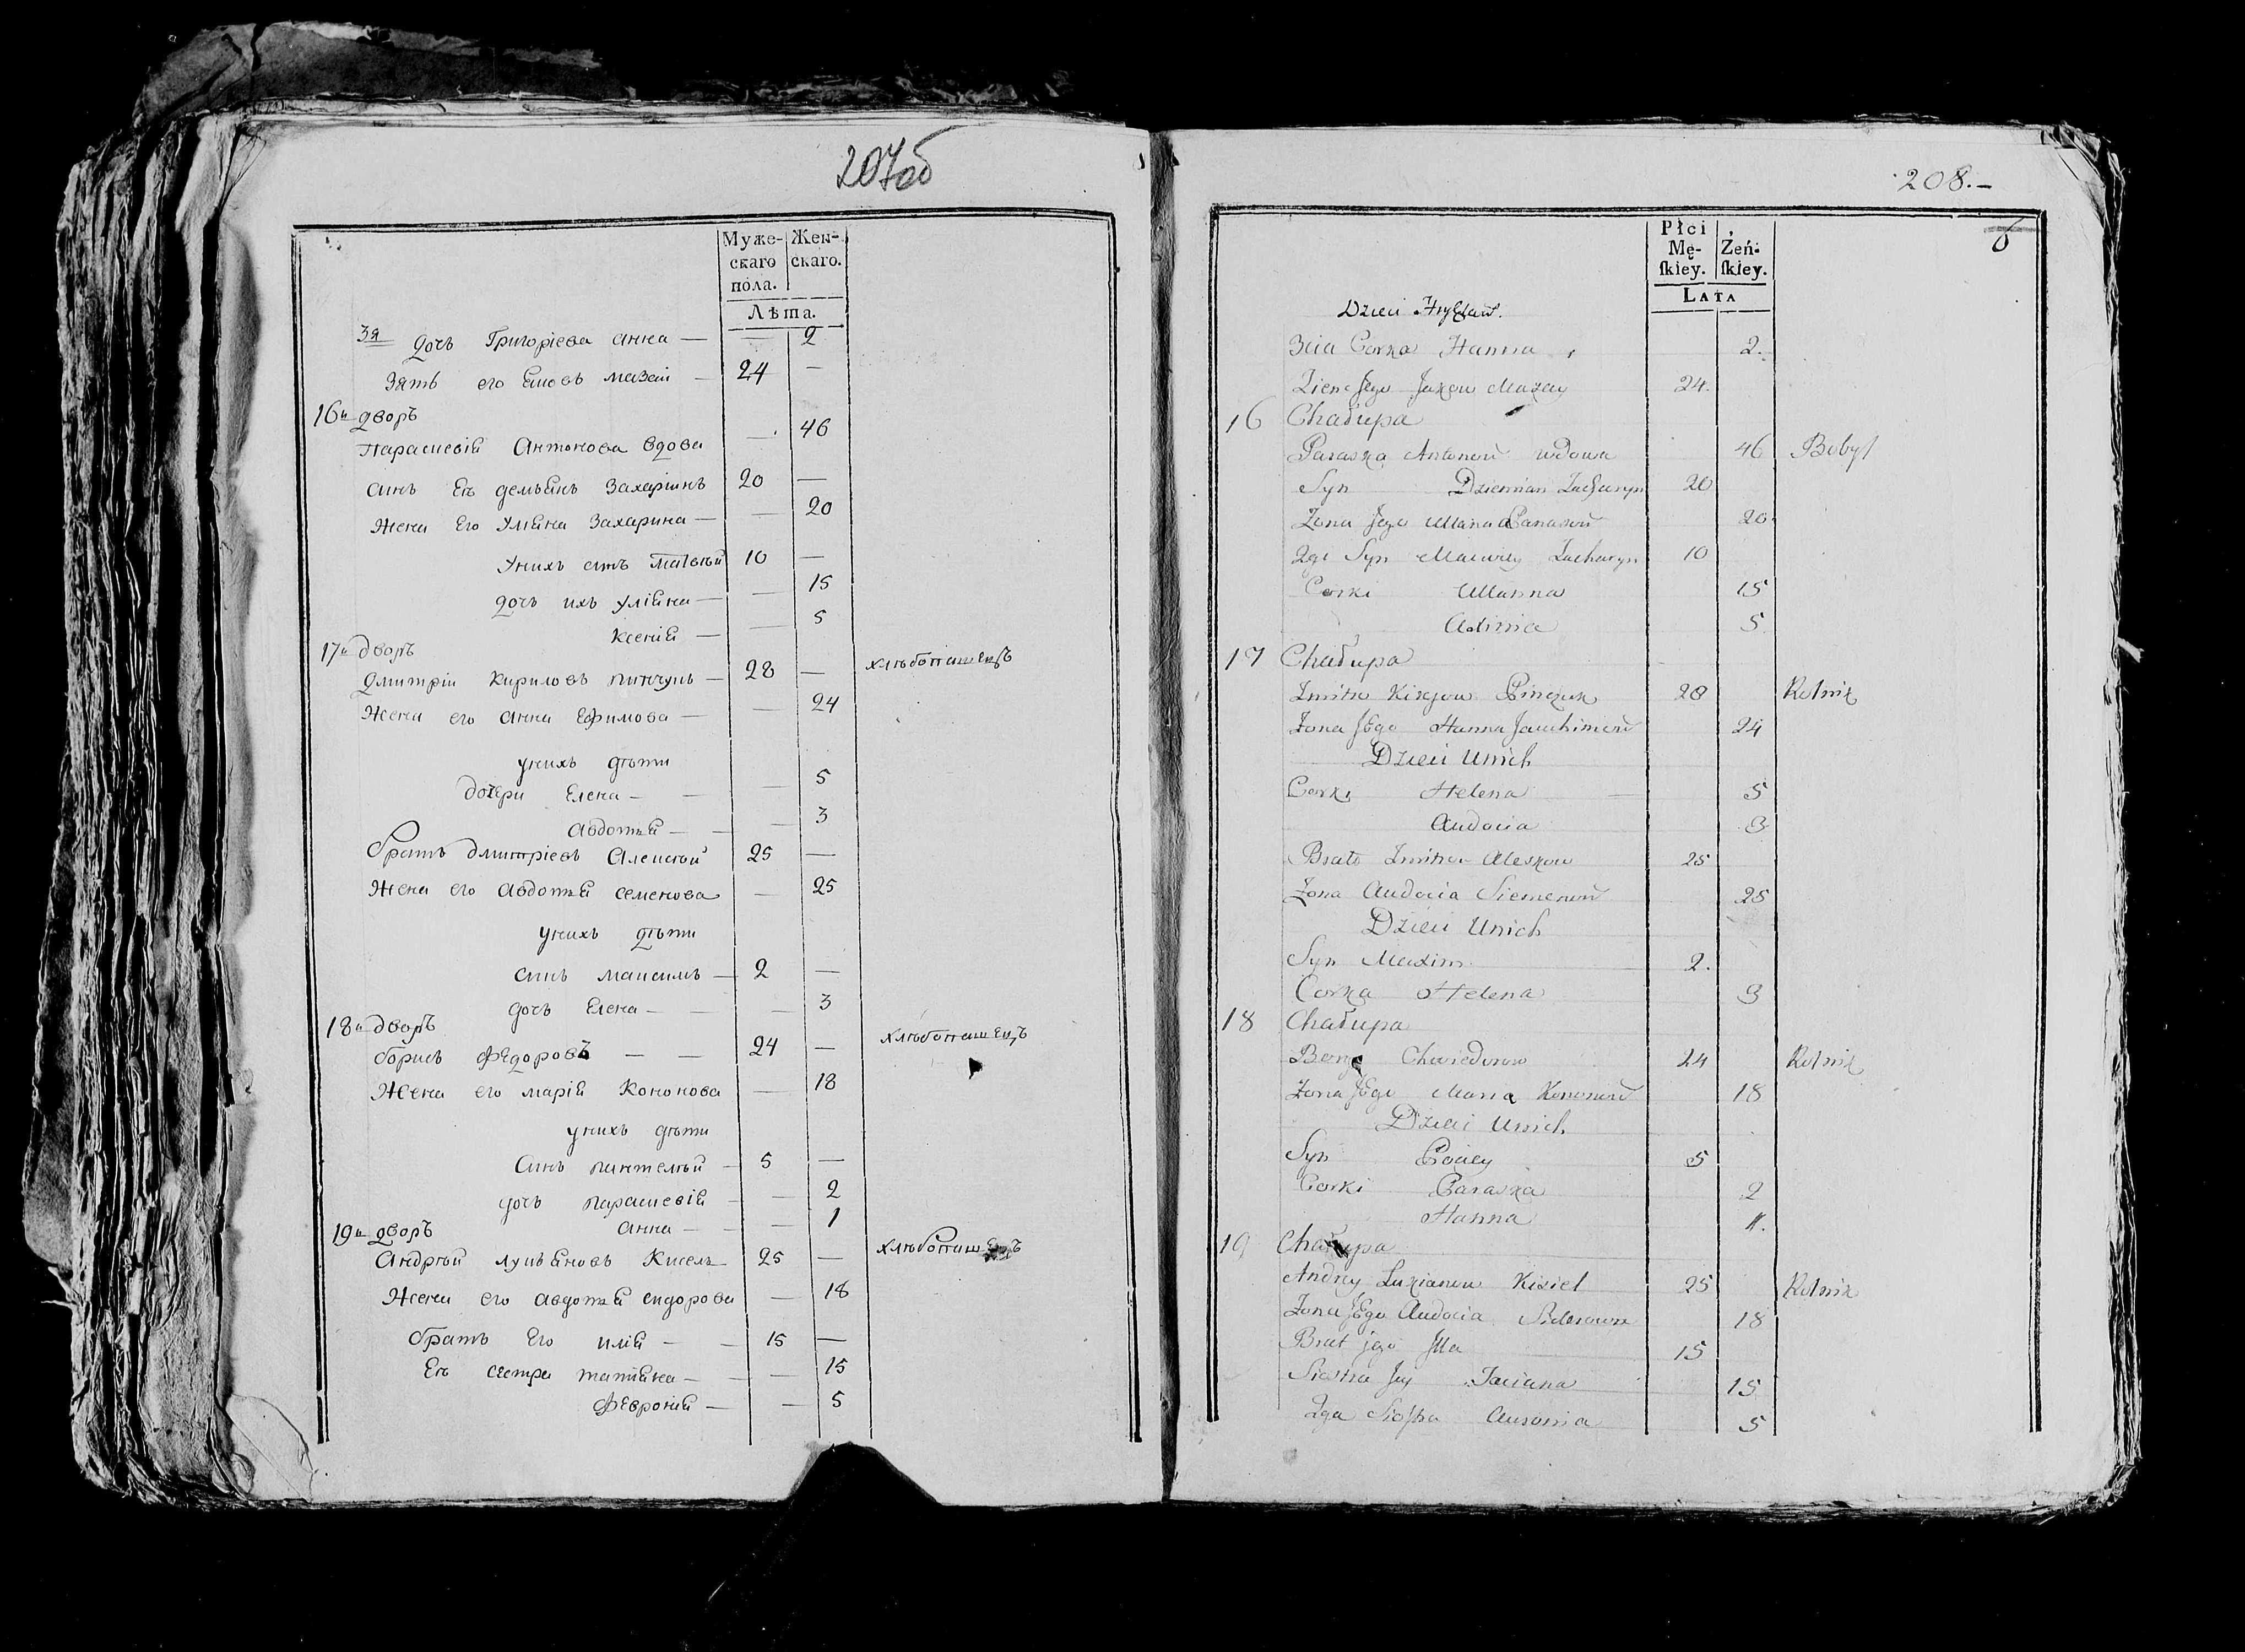 207об
Муже- Жен-
скаго скаго.
пола.
Лѣта.
3я дочь Григоріева Анна — — 2
Зять его Яковъ Мазай — 24 —
16й дворъ
Парасковія Антонова вдова — 46
Синъ Ея Демьянъ Захаринъ 20 —
Жена Его Уляна Захарина — — 20
Унихъ синъ Матвѣй 10 —
дочь ихъ Улияна — — 15
Ксенія — — 5
17й дворъ
Дмитрій Кириловъ Пинчукъ — 28 — хлѣбопашецъ
Жена его Анна Ефимова — — 24
унихъ дѣти
дочери Елена — — 5
Авдотья — — 3
братъ Дмитріевъ Алексѣй 25 —
Жена его Авдотья Семенова — 25
унихъ дѣти
синъ Максимъ — 2 —
дочь Елена — — 3
18й дворъ
Борисъ Федоровъ — — 24 — хлѣбопашецъ
Жена его Марія Кононова — 18
унихъ дѣти
Синъ Пантелѣй — 5 —
дочь Парасковія — — 2
Анна — — 1
19й дворъ
Андрѣй Лукьяновъ Кисель — 25 — хлѣбопашецъ
Жена его Авдотья Сидорова — 18
братъ Его Илія — — 15 —
Ея сестра Татияна — — 15
Февронія — — 5
208.—
6
Płci
Mę- Żeń-
ſkiey. ſkiey.
Lata
Dzieci
3cia Corka Hanna 2.
Jego Jakow Mazay 24.
16 Chałupa
Paraska Antonowa wdowa 46 Bobyl
Syn Dziemian Zacharyn 20
Zona Jego Ullana 20
2gi Syn Macwiey Zacharyn 10
Corki Ullanna 15
5
17 Chałupa
Zmitr Pinczuk 28 Rolnik
Zona JEgo Hanna Jauchimowa 24
Dzieci Unich
Corki Helena 5
Audocia 3
Brat Zmitra Aleskow 25
Zona Audocia Siemionowa 25
Dzieci Unich
Syn Maxim 2.
Corka Helena 3
18 Chałupa
Chwiedorow 24 Rolnik
Zona JEgo Maria Kononowa 18
Dzieci Unich
Syn 5
Corki Paraska 2
Hanna 1.
19 Chałupa
Andrey Lukianow Kisiel 25 Rolnik
Zona JEgo Audocia 18
Brat jego Illa 15
Siostra Jey Taciana 15
2ga Siostra 5